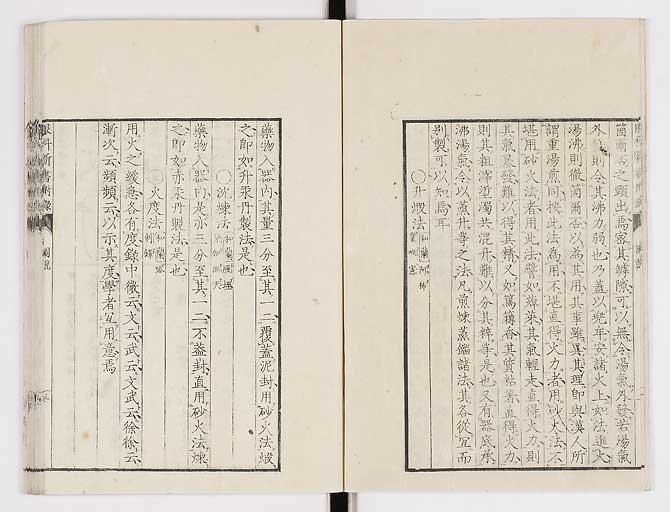 箇爾否之頸出焉密其罅隙可以無令湯氣外發若湯氣
外發則令其沸力弱也乃蓋以兜牟安諸火上如法進火
湯沸則徹箇爾否以為其用其事雖異其理即與漢人所
謂重湯煎同按此法為用不堪直得火力者用砂火法不
堪用砂火法者用此法譬如蒸其氣輕走直得火力則
其氣暴發難以得其精又如篤耨香其質粘著直得火力
則其粗滓逆濁共混升難以分其粹等是也又有器底承
沸湯氣令以蒸升等之法凡煎煉蒸餾諸法其各從宜而
別製可以知焉耳
○升煅法 和蘭
藥物入器內其量三分至其一二覆蓋泥封用砂火法煅
之即如升汞丹製法是也
○沈煉法 和蘭
藥物入器內是亦三分至其一二不蓋封直用砂火法煉
之即如赤汞丹製法是也
○火度法 和蘭
用火之緩急各有度錄中徵云文云武云文武云徐徐云
漸次云頻頻云以示其度學者宜用意焉
眼科新書附錄 圖說